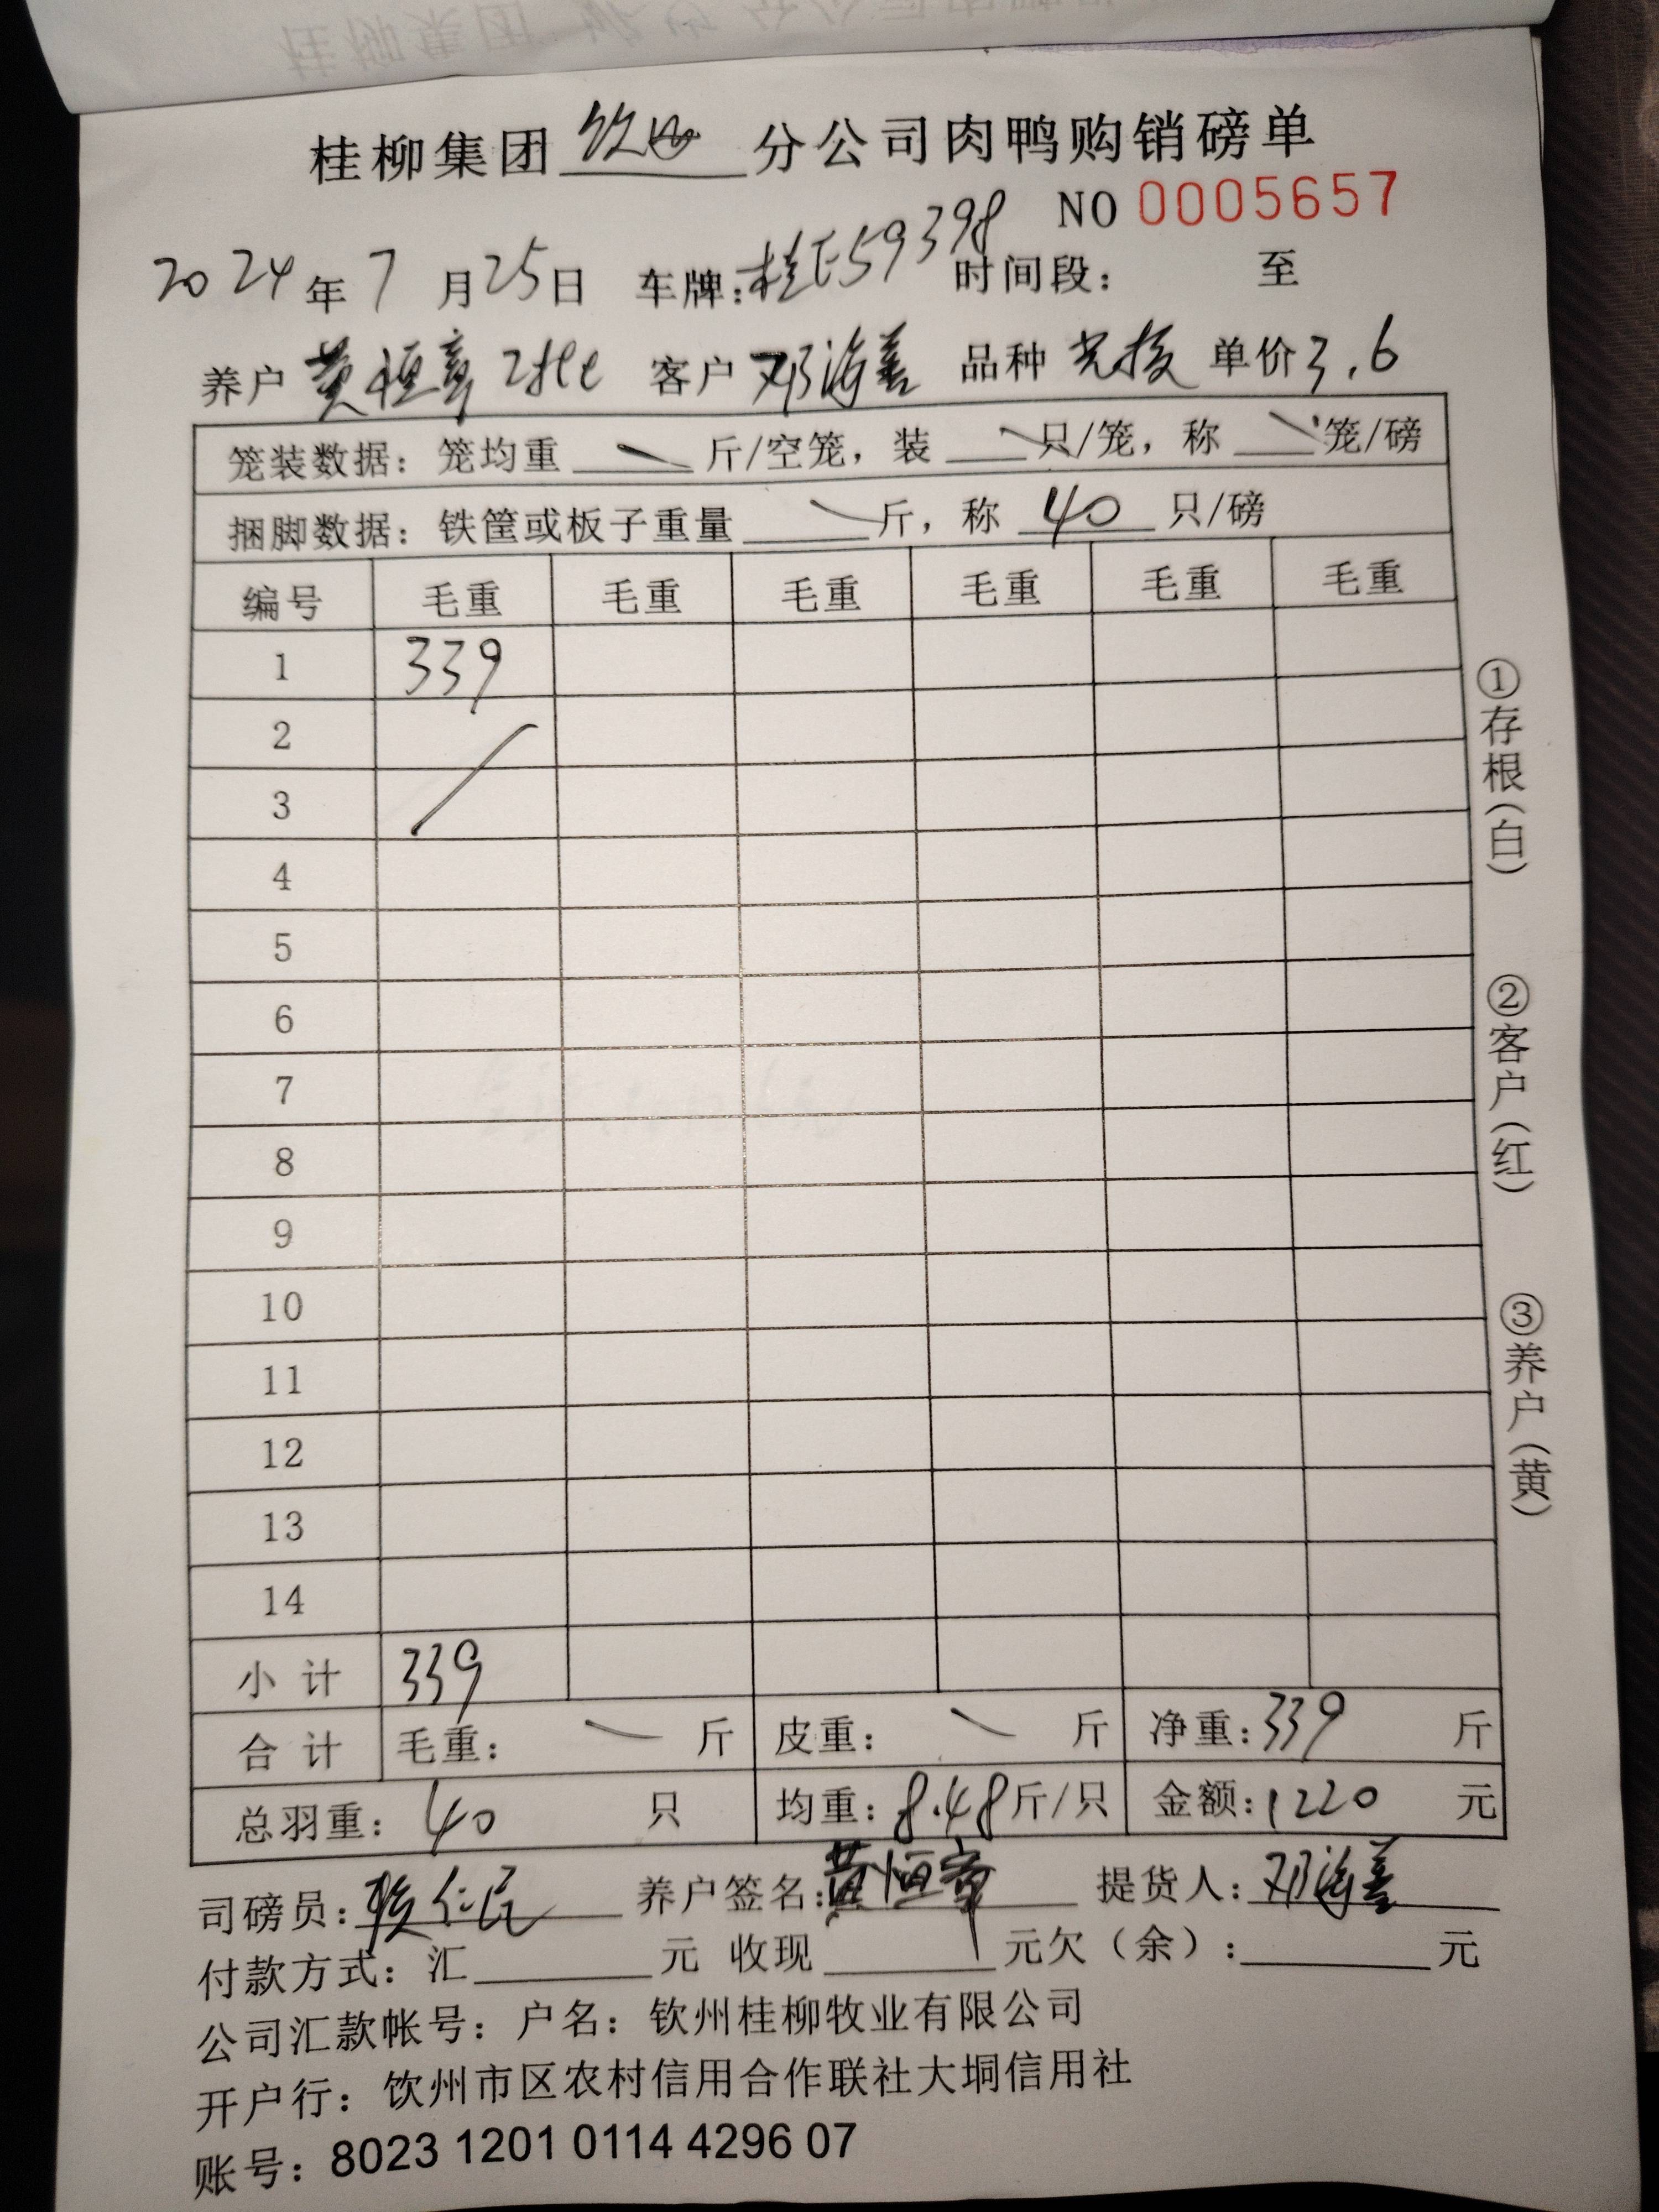 桂柳集团 钦州 分公司肉鸭购销磅单
NO 0005657
2024年7月25日 车牌:桂E59398 时间段: 至
养户 黄恒章2批 客户 邓海善 品种 单价3.6
笼装数据: 笼均重 斤/空笼, 装 只/笼, 称 笼/磅
捆脚数据: 铁筐或板子重量 斤, 称 40 只/磅
编号 毛重 毛重 毛重 毛重 毛重 毛重
1 339
2
3
4
5
6
7
8
9
10
11
12
13
14
小计 339
合计 毛重: 斤 皮重: 斤 净重:339 斤
总羽重: 40 只 均重: 8.48斤/只 金额:1220 元
司磅员:赖仁民 养户签名:黄恒章 提货人:邓海善
付款方式: 汇 元 收现 元欠(余): 元
公司汇款帐号: 户名: 钦州桂柳牧业有限公司
开户行: 钦州市区农村信用合作联社大垌信用社
账号: 8023 1201 0114 4296 07
①存根(白)
②客户(红)
③养户(黄)